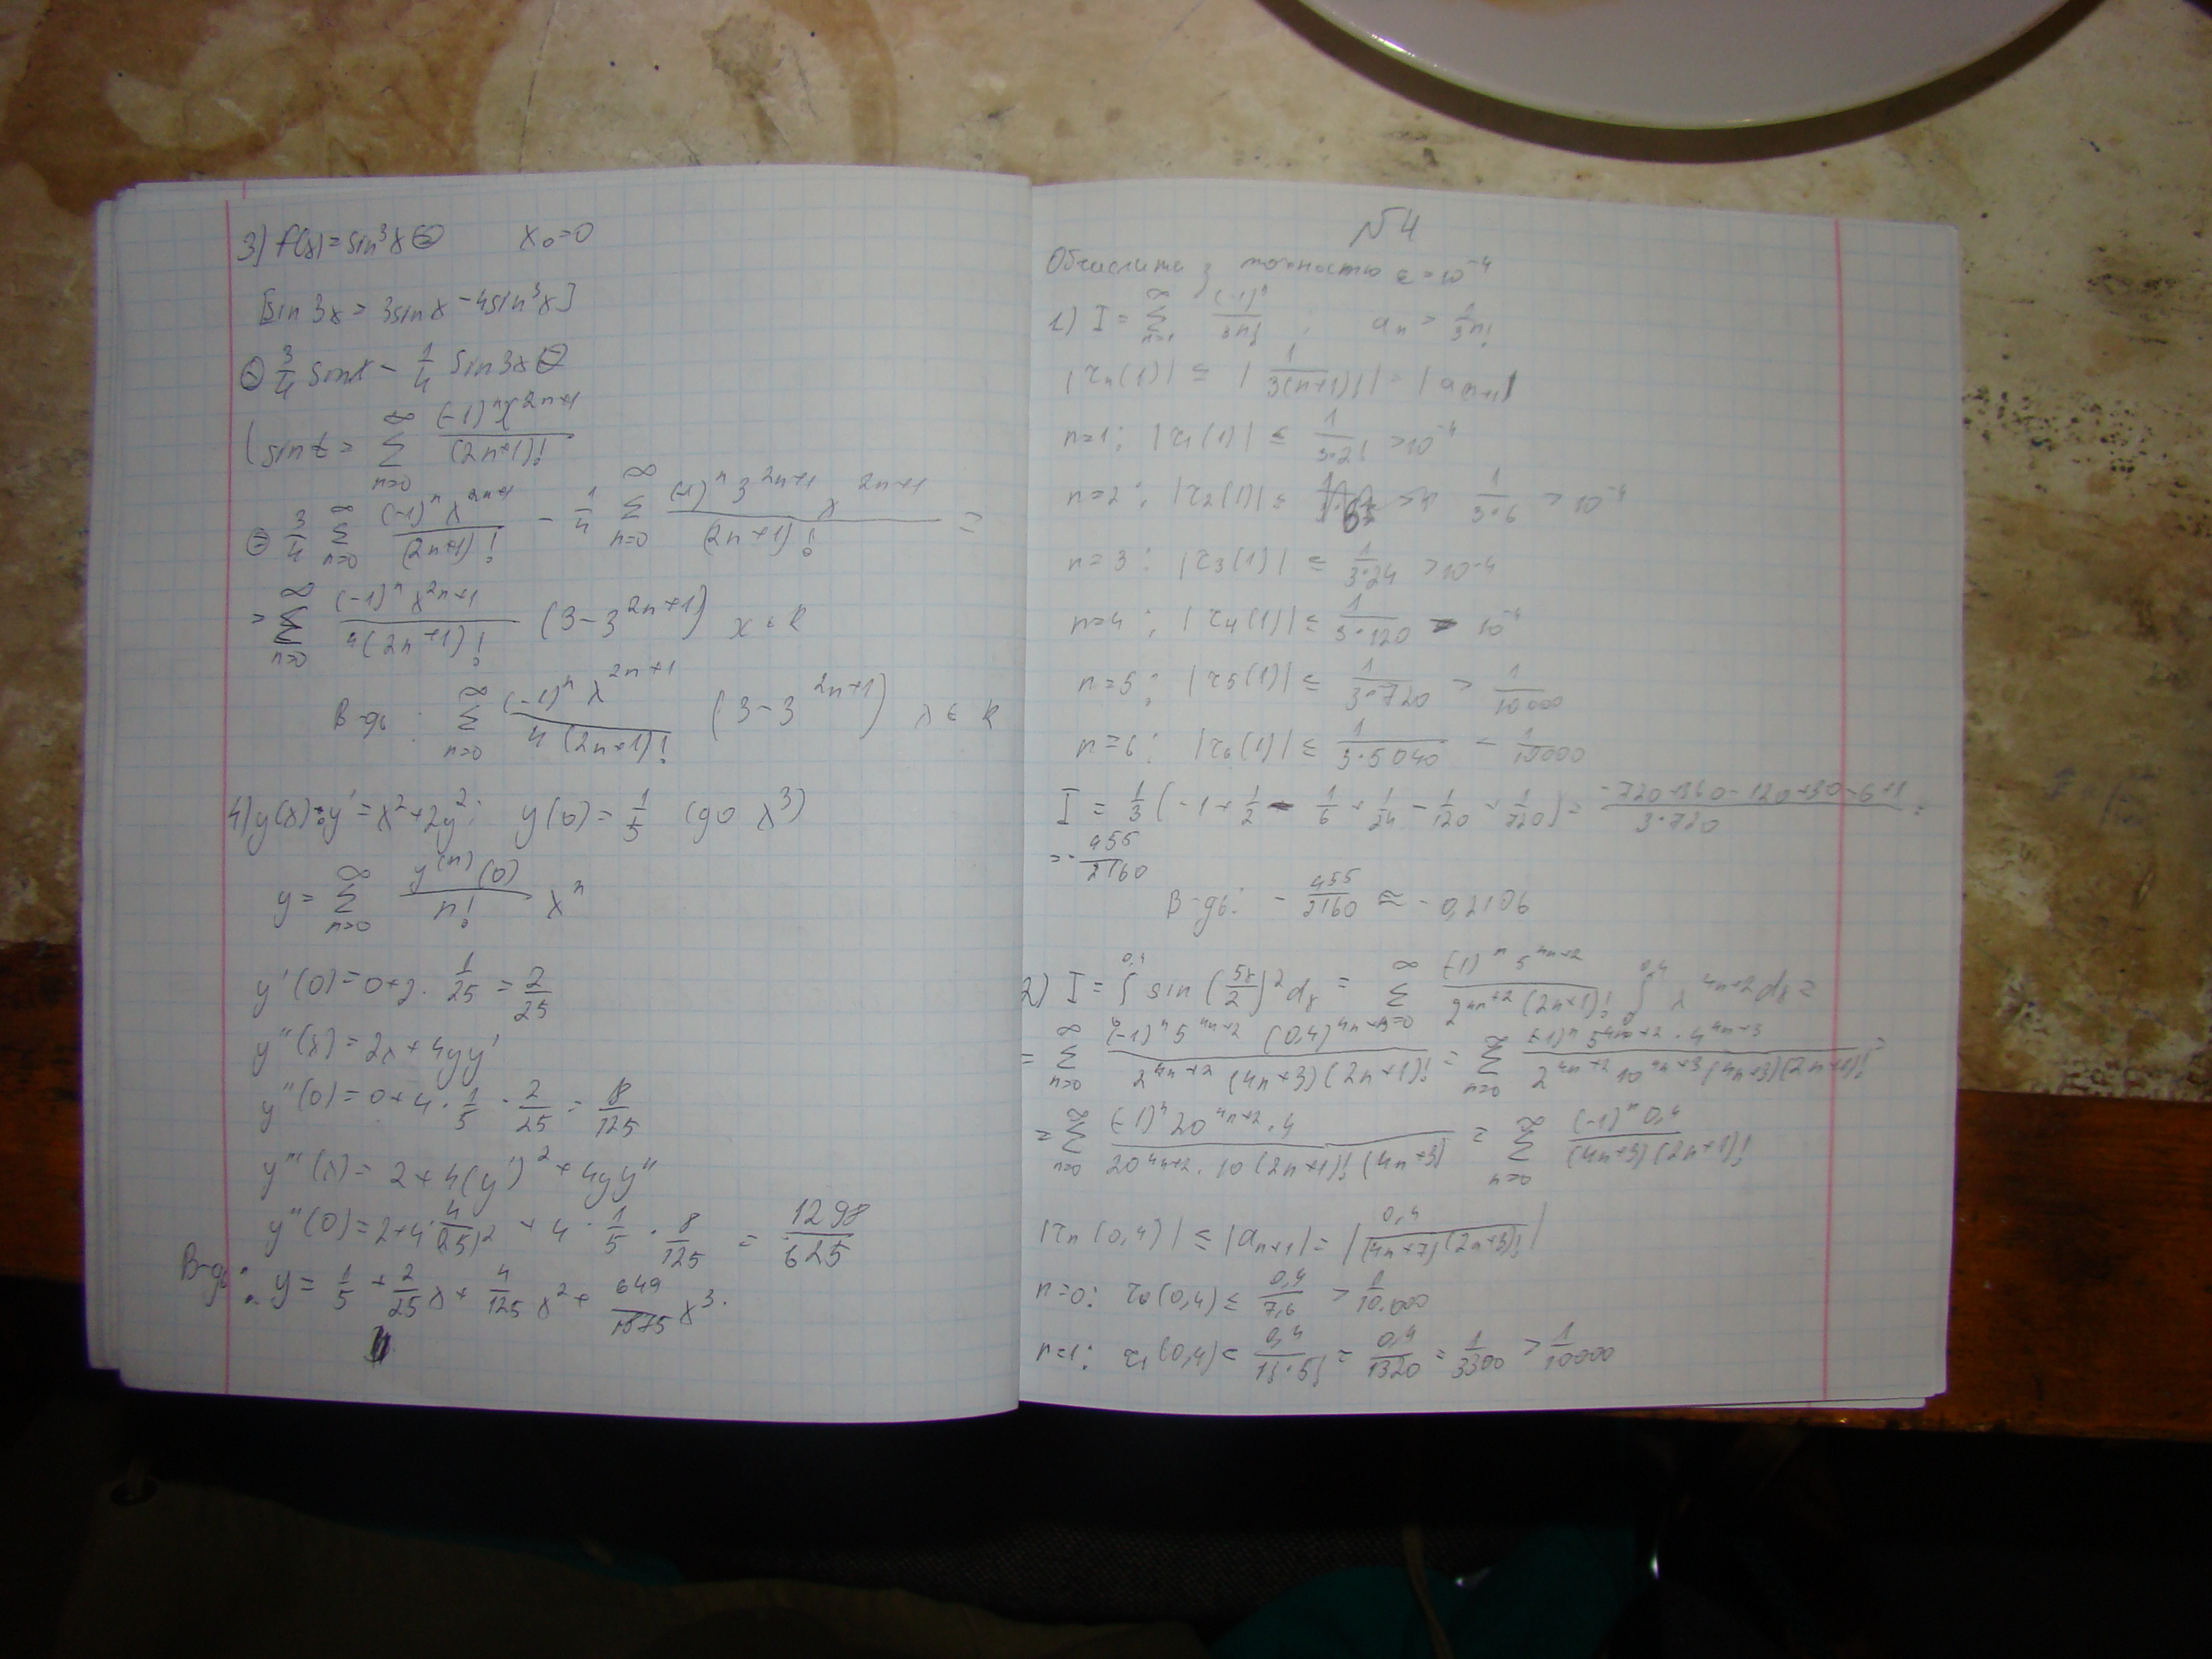 3) f(x)=sin³x ⊜ x₀=0
[sin 3x = 3sin x - 4sin³x]
⊜ 3/4 sin x - 1/4 sin 3x ⊜
(sin t = ∑_{n=0}^∞ (-1)ⁿ x^{2n+1} / (2n+1)!
⊜ 3/4 ∑_{n=0}^∞ (-1)ⁿ x^{2n+1} / (2n+1)! - 1/4 ∑_{n=0}^∞ (-1)ⁿ 3^{2n+1} x^{2n+1} / (2n+1)! =
= ∑_{n=0}^∞ (-1)ⁿ x^{2n+1} / 4(2n+1)! (3-3^{2n+1}) x ∈ R
В-дь: ∑_{n=0}^∞ (-1)ⁿ x^{2n+1} / 4(2n+1)! (3-3^{2n+1}) x ∈ R
4) y(x): y' = x²+2y²; y(0) = 1/5 (до x³)
y = ∑_{n=0}^∞ y^{(n)}(0) / n! xⁿ
y'(0) = 0+2·1/25 = 2/25
y''(x) = 2x+4yy'
y''(0) = 0+4·1/5·2/25 = 8/125
y'''(x) = 2+4(y')²+4yy''
y'''(0) = 2+4·4/(25)² + 4·1/5·8/125 = 1298/625
В-дь: y = 1/5 + 2/25 x + 4/125 x² + 649/1875 x³.
№4
Обчислити з точностю e=10⁻⁴
1) I = ∑_{n=1}^∞ (-1)ⁿ / 3n! ; aₙ = 1/3n!
|rₙ(1)| ≤ |1/3(n+1)!| = |aₙ₊₁|
n=1: |r₁(1)| ≤ 1/3·2! > 10⁻⁴
n=2: |r₂(1)| ≤ 1/3·6 > 10⁻⁴
n=3: |r₃(1)| ≤ 1/3·24 > 10⁻⁴
n=4: |r₄(1)| ≤ 1/3·120 > 10⁻⁴
n=5: |r₅(1)| ≤ 1/3·720 > 1/10000
n=6: |r₆(1)| ≤ 1/3·5040 - 1/10000
I = 1/3 (-1 + 1/2 - 1/6 + 1/24 - 1/120 + 1/720) = -720+360-120+30-6+1 / 3·720 =
= -455/2160
В-дь: -455/2160 ≈ -0,2106
2) I = ∫^{0,4} sin(5x/2)² dx = ∑^∞ (-1)ⁿ 5^{4n+2} / 2^{4n+2} (2n+1)! ∫_0^{0,4} x^{4n+2} dx =
= ∑_{n=0}^∞ (-1)ⁿ 5^{4n+2} (0,4)^{4n+3} / 2^{4n+2} (4n+3)(2n+1)! = ∑_{n=0}^∞ (-1)ⁿ 5^{4n+2} · 4^{4n+3} / 2^{4n+2} 10^{4n+3} (4n+3)(2n+1)! =
= ∑_{n=0}^∞ (-1)ⁿ 20^{4n+2} · 4 / 20^{4n+2} · 10 (2n+1)! (4n+3) = ∑_{n=0}^∞ (-1)ⁿ 0,4 / (4n+3)(2n+1)!
|rₙ(0,4)| ≤ |aₙ₊₁| = |0,4 / (4n+7)(2n+3)!|
n=0: r₀(0,4) ≤ 0,4/7,6 > 1/10.000
n=1: r₁(0,4) = 0,4/11·5! = 0,4/1320 = 1/3300 > 1/10000